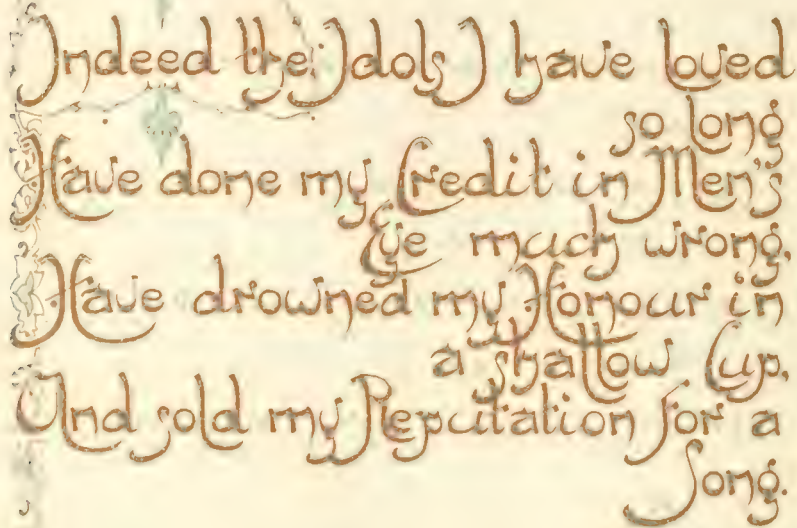 Indeed the Idols I have loved
so long
Have done my Credit in Men's
Eye much wrong,
Have drowned my Honour in
a shallow Cup,
And sold my Reputation for a
Song.